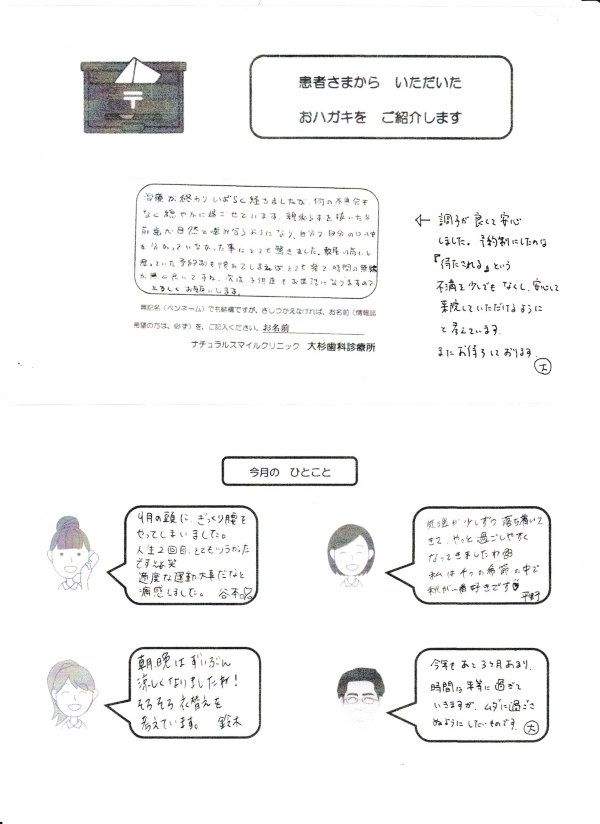 患者さまから いただいた
おハガキを ご紹介します
治療が終わりしばらく経ちましたが、何の不具合も
なく穏やかに過ごせています。親知らずを抜いたら
前歯が自然と噛み合うようになり、自分で自分の口の中
を分かっていなかった事にとても驚きました。敷居が高いと
思っていた予約制も慣れてしまえばとても楽で時間の無駄
が無く良いですね。次は子供達もお世話になりますので
よろしくお願いします。
無記名(ペンネーム)でも結構ですが、さしつかえなければ、お名前(情報誌
希望の方は、必ず)を、ご記入ください。お名前
ナチュラルスマイルクリニック 大杉歯科診療所
← 調子が良くて安心
しました。予約制にしたのは
『待たされる』という
不満を少しでもなくし、安心して
来院していただけるように
と考えています。
またお待ちしております。
大
今月の ひとこと
9月の頭に、ぎっくり腰を
やってしまいました。
人生2回目、とてもツラかった
ですよ笑
適度な運動、大事だなと
痛感しました。 谷本
気温が少しずつ落ち着いて
きて、やっと過ごしやすく
なってきましたね
私は4つの季節の中で
秋が一番好きです
平野
朝、晩はずいぶん
涼しくなりましたね!
そろそろ衣替えを
考えています。 鈴木
今年もあと3ヶ月あまり、
時間は平等に過ぎて
いきますが、ムダに過ごさ
ぬようにしたいものです。 大